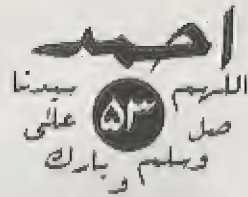 احمد
اللهم
صل
على
سيدنا
٥٣
وسلم
و
بارك